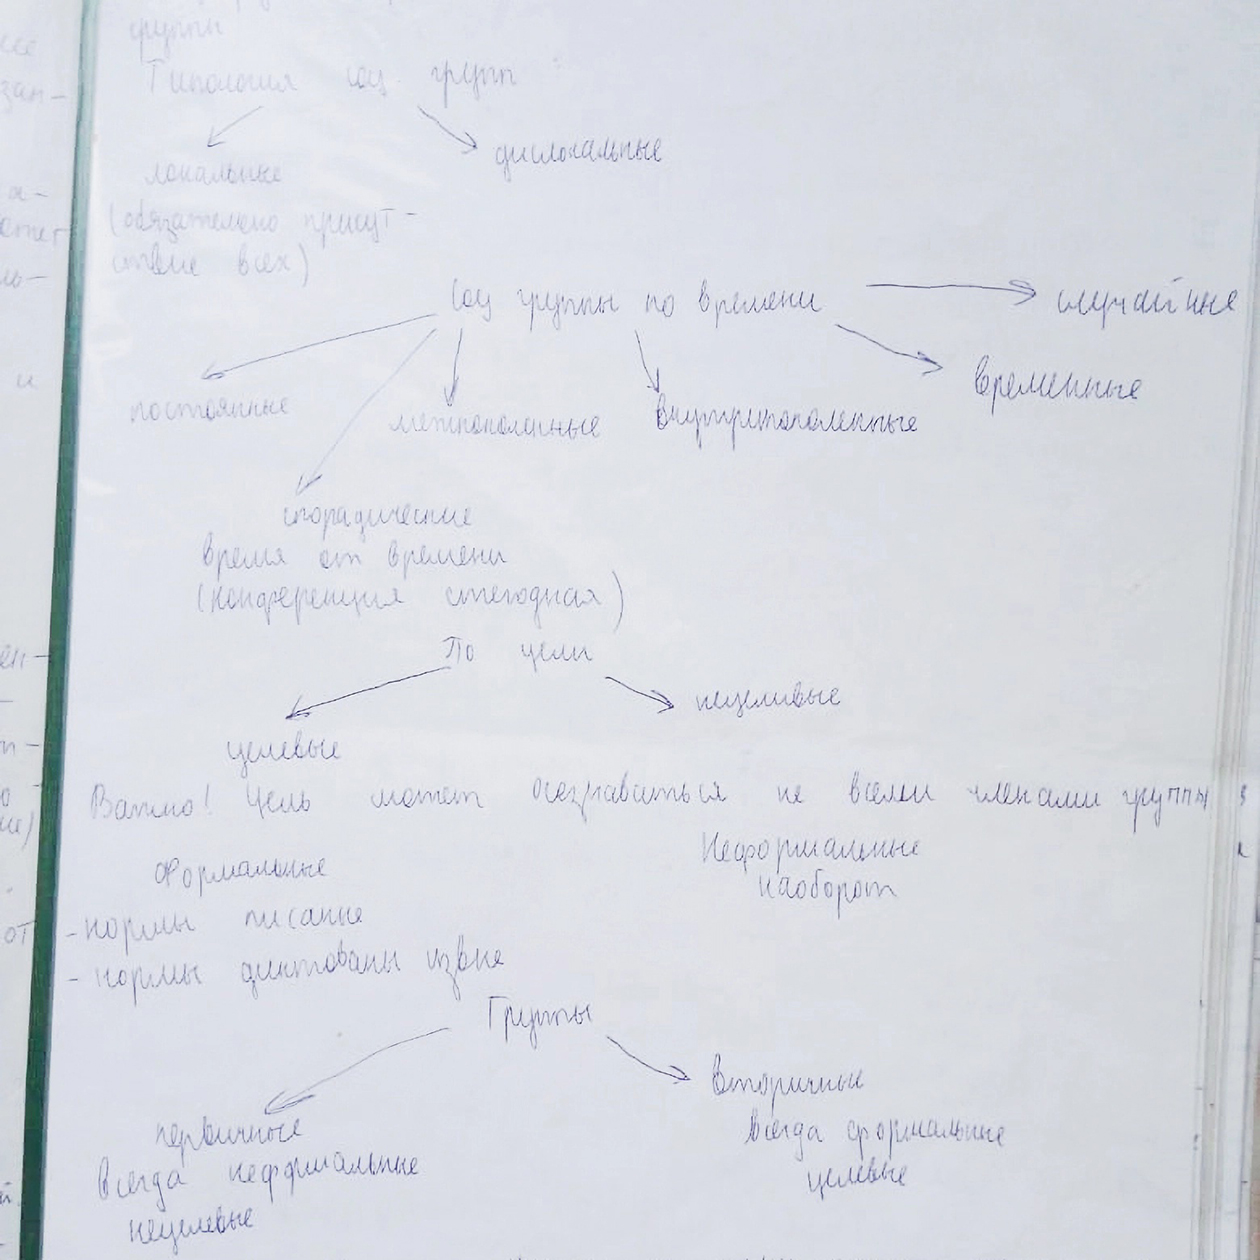 группы
Типология соц. групп
локальные
дислокальные
(обязательно присут-
ствие всех)
Соц группы по времени
случайные
временные
постоянные
межпоколенные
внутрипоколенные
спорадические
время от времени
(конференция ежегодная)
По цели
целевые
нецелевые
Важно! Цель может осознаваться не всеми членами группы
Формальные
Неформальные
наоборот
- нормы писаные
- нормы диктованы извне
Группы
первичные
всегда неформальные
нецелевые
вторичные
всегда формальные
целевые